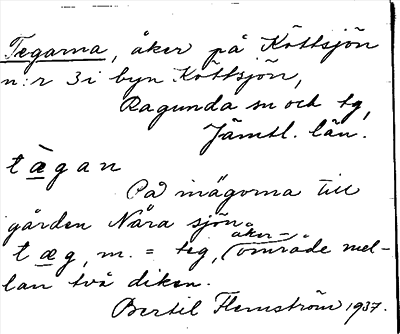 Tegarna, åker på Köttsjön
n:r 3 i byn Köttsjön,
Ragunda sn och tg,
Jämtl. län.
tæ̀gan
På inägorna till
gården Nära sjön.
tæg, m. = teg, (åker-)område mel-
lan två diken.
Bertil Flemström 1937.